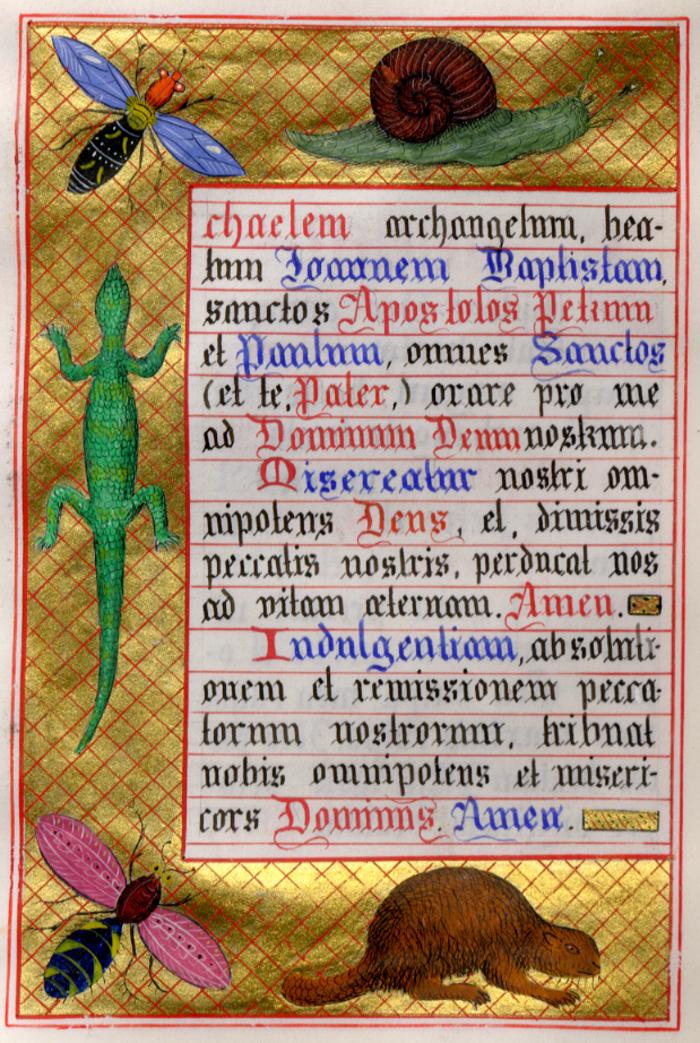 chaelem archangelum, bea-
tum Joannem Baptistam,
sanctos Apostolos Petrum
et Paulum, omnes Sanctos
(et te, Pater,) orare pro me
ad Dominum Deum nostrum.
Misereatur nostri om-
nipotens Deus, et, dimissis
peccatis nostris, perducat nos
ad vitam æternam. Amen.
Indulgentiam, absoluti-
onem et remissionem pecca-
torum nostrorum, tribuat
nobis omnipotens et miseri-
cors Dominus. Amen.